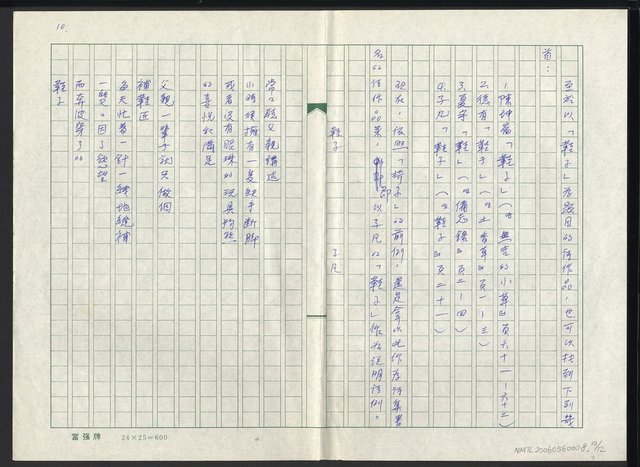 10.
至於以「鞋子」為題目的詩作品，也可以找到下列幾
首：
1.陳坤崙「鞋子」（『無言的小草』頁六十一－六十二）
2.德有「鞋子」（『土香草』頁一－三）
3.夏宇「鞋」（『備忘錄』頁二－四）
4.子凡「鞋子」（『鞋子』頁二十一）
現在，依照「椅子」的前例，還是拿以此作為詩集書
名的詩作品來，即以子凡的「鞋子」作為說明詩例。
鞋子　子凡
常常聽父親講述
小時候擁有一隻缺手斷腳
或者沒有眼珠的玩具狗熊
的喜悅和滿足
父親一輩子就只做個
補鞋匠
每天忙著一針一線地縫補
一雙雙因了慾望
而奔波穿了的
鞋子
富强牌　24×25=600
NMTL20060560008. 10/12